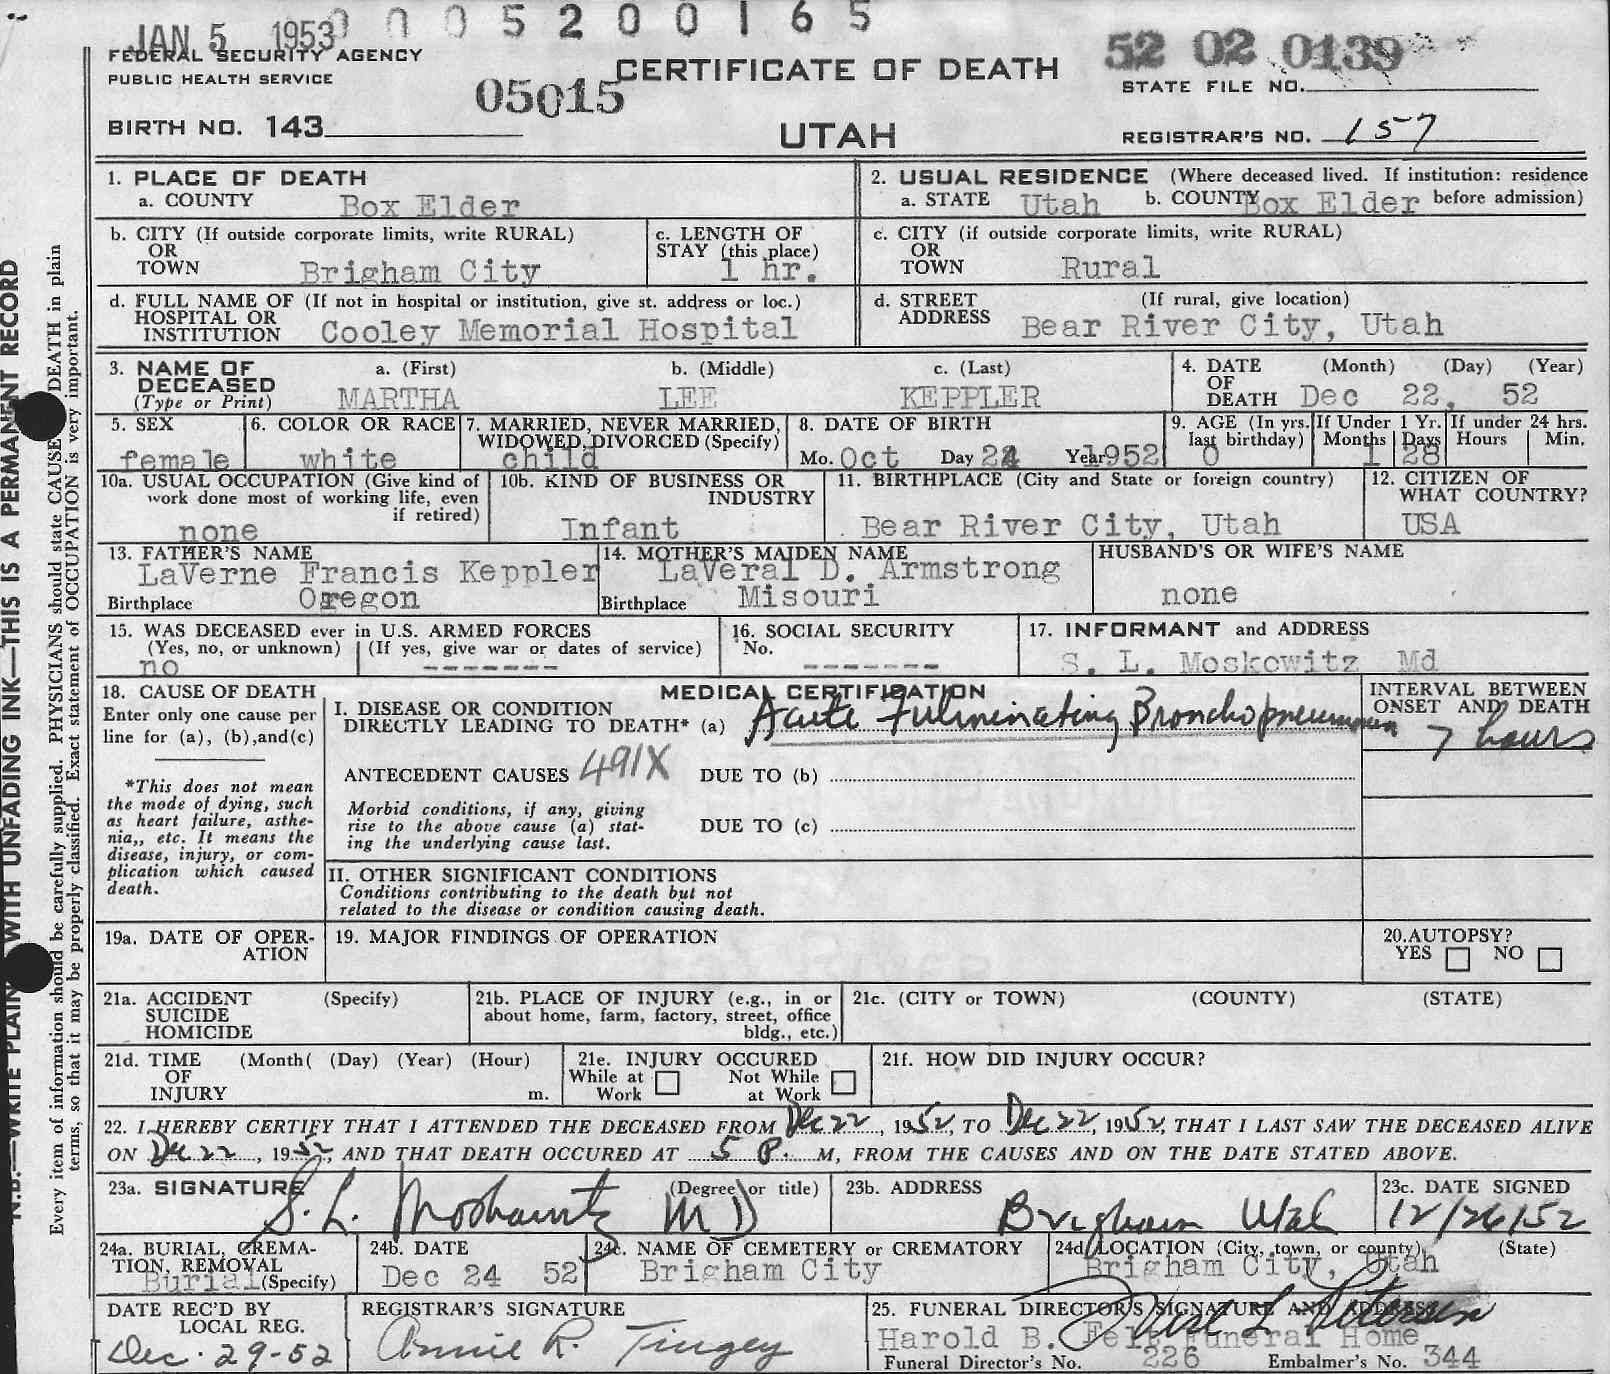 JAN 5 1953 0 0 0 5 2 0 0 1 6 5
FEDERAL SECURITY AGENCY
PUBLIC HEALTH SERVICE
05015
CERTIFICATE OF DEATH
52 02 0139
STATE FILE NO.
BIRTH NO. 143
UTAH
REGISTRAR'S NO. 157
1. PLACE OF DEATH
a. COUNTY Box Elder
2. USUAL RESIDENCE (Where deceased lived. If institution: residence
a. STATE Utah b. COUNTY Box Elder before admission)
b. CITY (If outside corporate limits, write RURAL)
OR
TOWN Brigham City
c. LENGTH OF
STAY (this place)
1 hr.
c. CITY (if outside corporate limits, write RURAL)
OR
TOWN Rural
d. FULL NAME OF (If not in hospital or institution, give st. address or loc.)
HOSPITAL OR
INSTITUTION Cooley Memorial Hospital
d. STREET (If rural, give location)
ADDRESS Bear River City, Utah
3. NAME OF a. (First) b. (Middle) c. (Last)
DECEASED
(Type or Print) MARTHA LEE KEPPLER
4. DATE (Month) (Day) (Year)
OF
DEATH Dec 22, 52
5. SEX
female
6. COLOR OR RACE
white
7. MARRIED, NEVER MARRIED,
WIDOWED, DIVORCED (Specify)
child
8. DATE OF BIRTH
Mo. Oct Day 24 Year 1952
9. AGE (In yrs. last birthday)
0
If Under 1 Yr.
Months Days
1 28
If under 24 hrs.
Hours Min.
10a. USUAL OCCUPATION (Give kind of
work done most of working life, even
if retired)
none
10b. KIND OF BUSINESS OR
INDUSTRY
Infant
11. BIRTHPLACE (City and State or foreign country)
Bear River City, Utah
12. CITIZEN OF
WHAT COUNTRY?
USA
13. FATHER'S NAME
LaVerne Francis Keppler
Birthplace Oregon
14. MOTHER'S MAIDEN NAME
LaVeral D. Armstrong
Birthplace Misouri
HUSBAND'S OR WIFE'S NAME
none
15. WAS DECEASED ever in U.S. ARMED FORCES
(Yes, no, or unknown) (If yes, give war or dates of service)
no -------
16. SOCIAL SECURITY
No.
-------
17. INFORMANT and ADDRESS
S. L. Moskowitz Md
18. CAUSE OF DEATH
Enter only one cause per
line for (a), (b), and (c)
*This does not mean
the mode of dying, such
as heart failure, asthe-
nia,, etc. It means the
disease, injury, or com-
plication which caused
death.
MEDICAL CERTIFICATION
I. DISEASE OR CONDITION
DIRECTLY LEADING TO DEATH* (a) Acute Fulminating Bronchopneumonia
INTERVAL BETWEEN
ONSET AND DEATH
7 hours
ANTECEDENT CAUSES 491X DUE TO (b)
Morbid conditions, if any, giving
rise to the above cause (a) stat-
ing the underlying cause last.
DUE TO (c)
II. OTHER SIGNIFICANT CONDITIONS
Conditions contributing to the death but not
related to the disease or condition causing death.
19a. DATE OF OPER-
ATION
19. MAJOR FINDINGS OF OPERATION
20. AUTOPSY?
YES NO
21a. ACCIDENT (Specify)
SUICIDE
HOMICIDE
21b. PLACE OF INJURY (e.g., in or
about home, farm, factory, street, office
bldg., etc.)
21c. (CITY or TOWN) (COUNTY) (STATE)
21d. TIME (Month( (Day) (Year) (Hour)
OF
INJURY m.
21e. INJURY OCCURED
While at Work Not While at Work
21f. HOW DID INJURY OCCUR?
22. I HEREBY CERTIFY THAT I ATTENDED THE DECEASED FROM Dec 22, 1952, TO Dec 22, 1952, THAT I LAST SAW THE DECEASED ALIVE
ON Dec 22, 1952, AND THAT DEATH OCCURED AT 5 P. M, FROM THE CAUSES AND ON THE DATE STATED ABOVE.
23a. SIGNATURE (Degree or title)
S. L. Moskowitz MD
23b. ADDRESS
Brigham Utah
23c. DATE SIGNED
12/26/52
24a. BURIAL, CREMA-
TION, REMOVAL
Burial (Specify)
24b. DATE
Dec 24 52
24c. NAME OF CEMETERY or CREMATORY
Brigham City
24d. LOCATION (City, town, or county) (State)
Brigham City, Utah
DATE REC'D BY
LOCAL REG.
Dec. 29-52
REGISTRAR'S SIGNATURE
Annie R. Tingey
25. FUNERAL DIRECTOR'S SIGNATURE AND ADDRESS
Harold B. Felt Funeral Home
Funeral Director's No. 226 Embalmer's No. 344
N.B.—WRITE PLAIN WITH UNFADING INK—THIS IS A PERMANENT RECORD
Every item of information should be carefully supplied. PHYSICIANS should state CAUSE DEATH in plain
terms, so that it may be properly classified. Exact statement of OCCUPATION is very important.